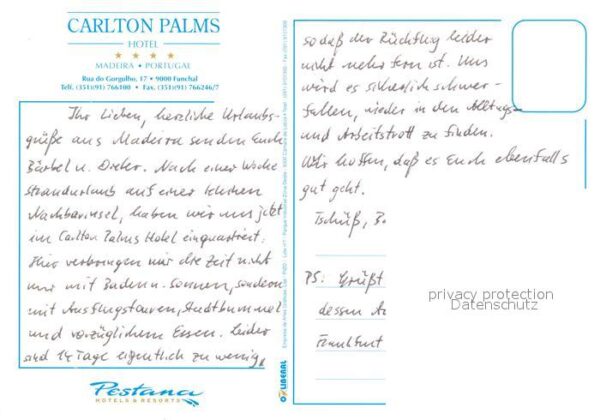 CARLTON PALMS
HOTEL
MADEIRA • PORTUGAL
Rua do Gorgulho, 17 • 9000 Funchal
Telf. (351)(91) 766100 • Fax. (351)(91) 766246/7
Ihr Lieben, herzliche Urlaubs-
grüße aus Madeira senden Euch
Bärbel u. Dieter. Nach einer Woche
Strandurlaub auf einer kleinen
Nachbarinsel, haben wir uns jetzt
im Carlton Palms Hotel einquartiert.
Hier verbringen wir die Zeit nicht
nur mit Baden u. Sonnen, sondern
mit Ausflugstouren, Stadtbummel
und vorzüglichem Essen. Leider
sind 14 Tage eigentlich zu wenig,
Pestana
HOTELS & RESORTS
LIBERAL
sodaß der Rückflug leider
nicht mehr fern ist. Uns
wird es sicherlich schwer-
fallen, wieder in den Alltags-
und Arbeitstrott zu finden.
Wir hoffen, daß es Euch ebenfalls
gut geht.
Tschüß, B.
PS: Grüßt
dessen
Frankfurt
privacy protection
Datenschutz